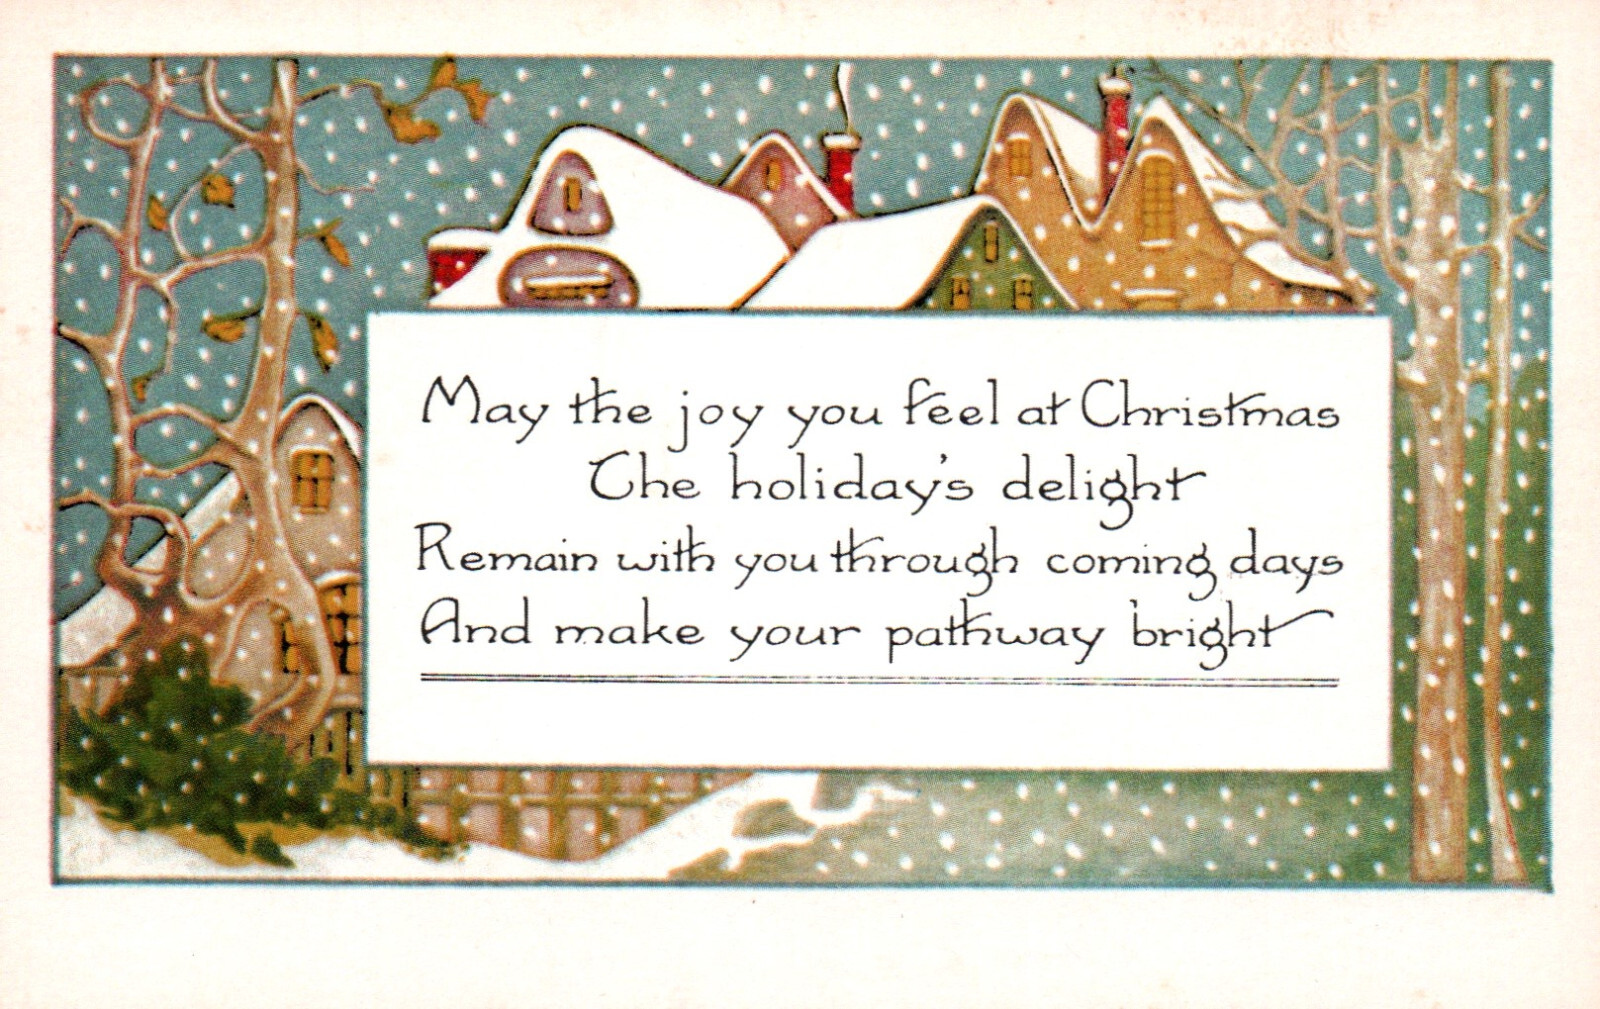 May the joy you feel at Christmas
The holiday's delight
Remain with you through coming days
And make your pathway bright